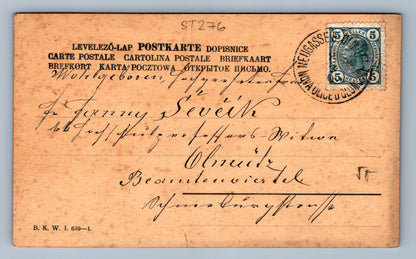 ST276
LEVELEZŐ-LAP POSTKARTE DOPISNICE
CARTE POSTALE CARTOLINA POSTALE BRIEFKAART
BREFKORT KARTA POCZTOWA ОТКРЫТОЕ ПИСЬМО.
5 5
NEUGASSE
NOVÁ ULICE U OLOM
Wohlgeboren
Fanny Ševčik
Professors-Witwe
Olmütz
Beamtenviertel
B. K. W. I. 639-1.